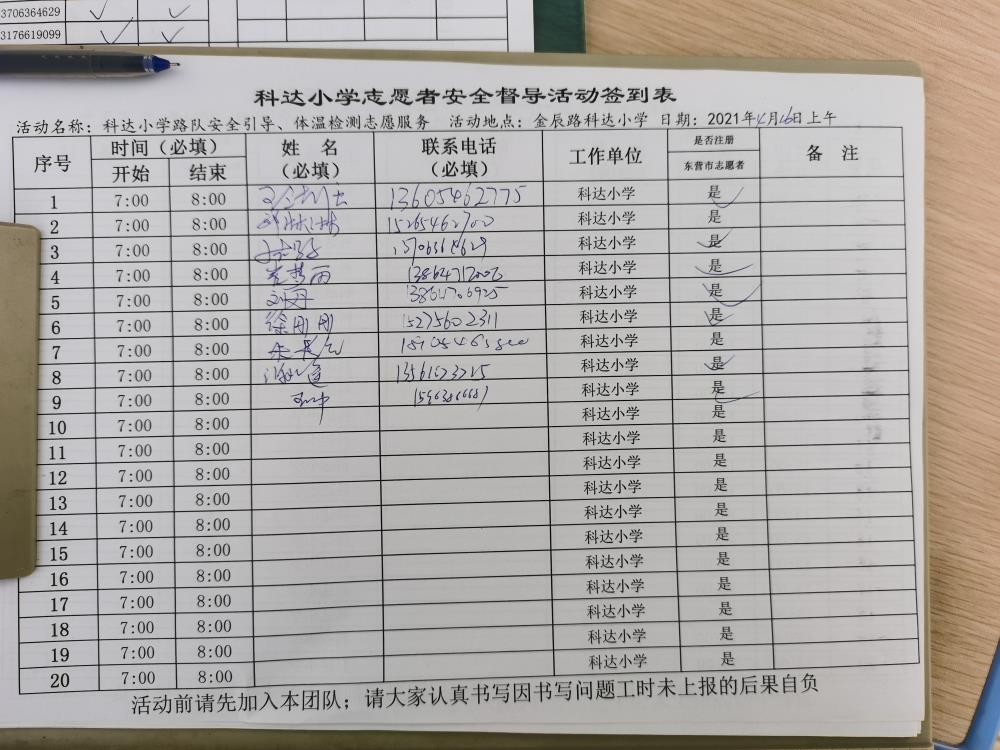 3706364629
3176619099
科达小学志愿者安全督导活动签到表
活动名称：科达小学路队安全引导、体温检测志愿服务 活动地点：金辰路科达小学 日期：2021年4月16日上午
序号 时间（必填） 姓 名（必填） 联系电话（必填） 工作单位 是否注册 备 注
开始 结束 东营市志愿者
1 7:00 8:00 13605462775 科达小学 是
2 7:00 8:00 15265462700 科达小学 是
3 7:00 8:00 科达小学 是
4 7:00 8:00 科达小学 是
5 7:00 8:00 科达小学 是
6 7:00 8:00 徐丽丽 15275602311 科达小学 是
7 7:00 8:00 科达小学 是
8 7:00 8:00 科达小学 是
9 7:00 8:00 科达小学 是
10 7:00 8:00 科达小学 是
11 7:00 8:00 科达小学 是
12 7:00 8:00 科达小学 是
13 7:00 8:00 科达小学 是
14 7:00 8:00 科达小学 是
15 7:00 8:00 科达小学 是
16 7:00 8:00 科达小学 是
17 7:00 8:00 科达小学 是
18 7:00 8:00 科达小学 是
19 7:00 8:00 科达小学 是
20 7:00 8:00 科达小学 是
活动前请先加入本团队；请大家认真书写因书写问题工时未上报的后果自负